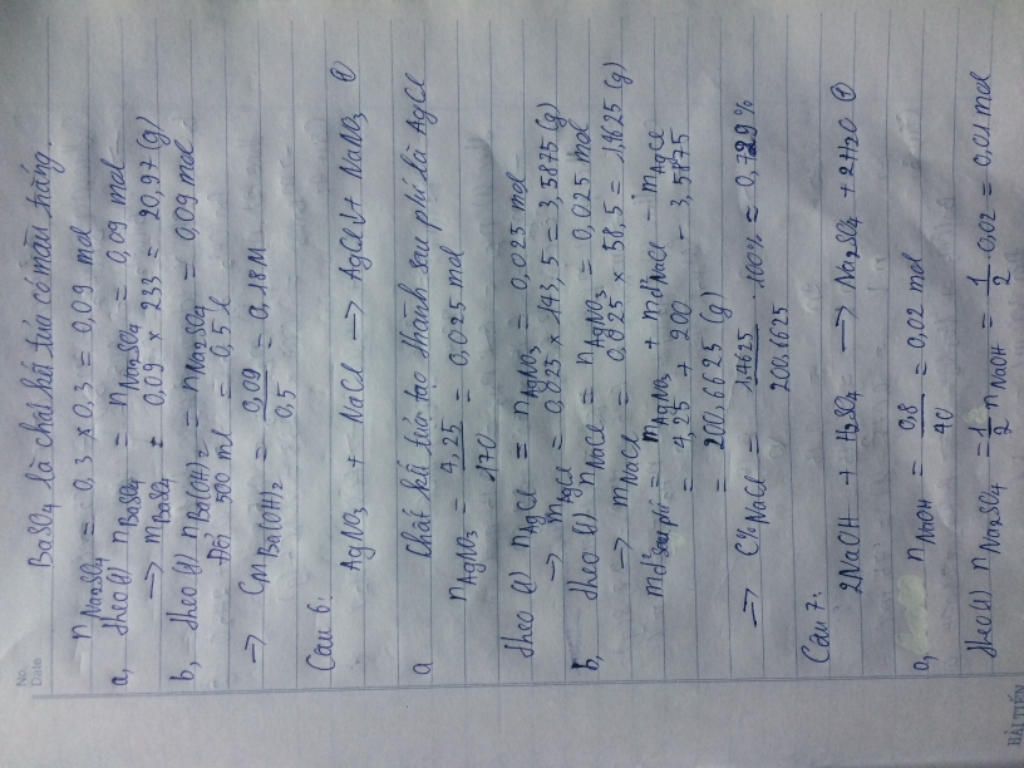 No.
Date
BaSO4 là chất kết tủa có màu trắng.
n Na2SO4 = 0,3 × 0,3 = 0,09 mol
a, theo (1) n BaSO4 = n Na2SO4 = 0,09 mol
=> m BaSO4 = 0,09 × 233 = 20,97 (g)
b, theo (1) n Ba(OH)2 = n Na2SO4 = 0,09 mol
Đổi 500 ml = 0,5 l
=> CM Ba(OH)2 = 0,09 / 0,5 = 0,18M
Câu 6:
AgNO3 + NaCl → AgCl↓ + NaNO3 (1)
a Chất kết tủa tạo thành sau pứ là AgCl
n AgNO3 = 4,25 / 170 = 0,025 mol
theo (1) n AgCl = n AgNO3 = 0,025 mol
=> m AgCl = 0,025 × 143,5 = 3,5875 (g)
b, theo (1) n NaCl = n AgNO3 = 0,025 mol
=> m NaCl = 0,025 × 58,5 = 1,4625 (g)
mdd sau pứ = m AgNO3 + mdd NaCl - m AgCl
= 4,25 + 200 - 3,5875
= 200,6625 (g)
=> C% NaCl = 1,4625 / 200,6625 . 100% = 0,729%
Câu 7:
2NaOH + H2SO4 → Na2SO4 + 2H2O (1)
a, n NaOH = 0,8 / 40 = 0,02 mol
theo (1) n Na2SO4 = 1/2 n NaOH = 1/2 . 0,02 = 0,01 mol
HẢI TIẾN